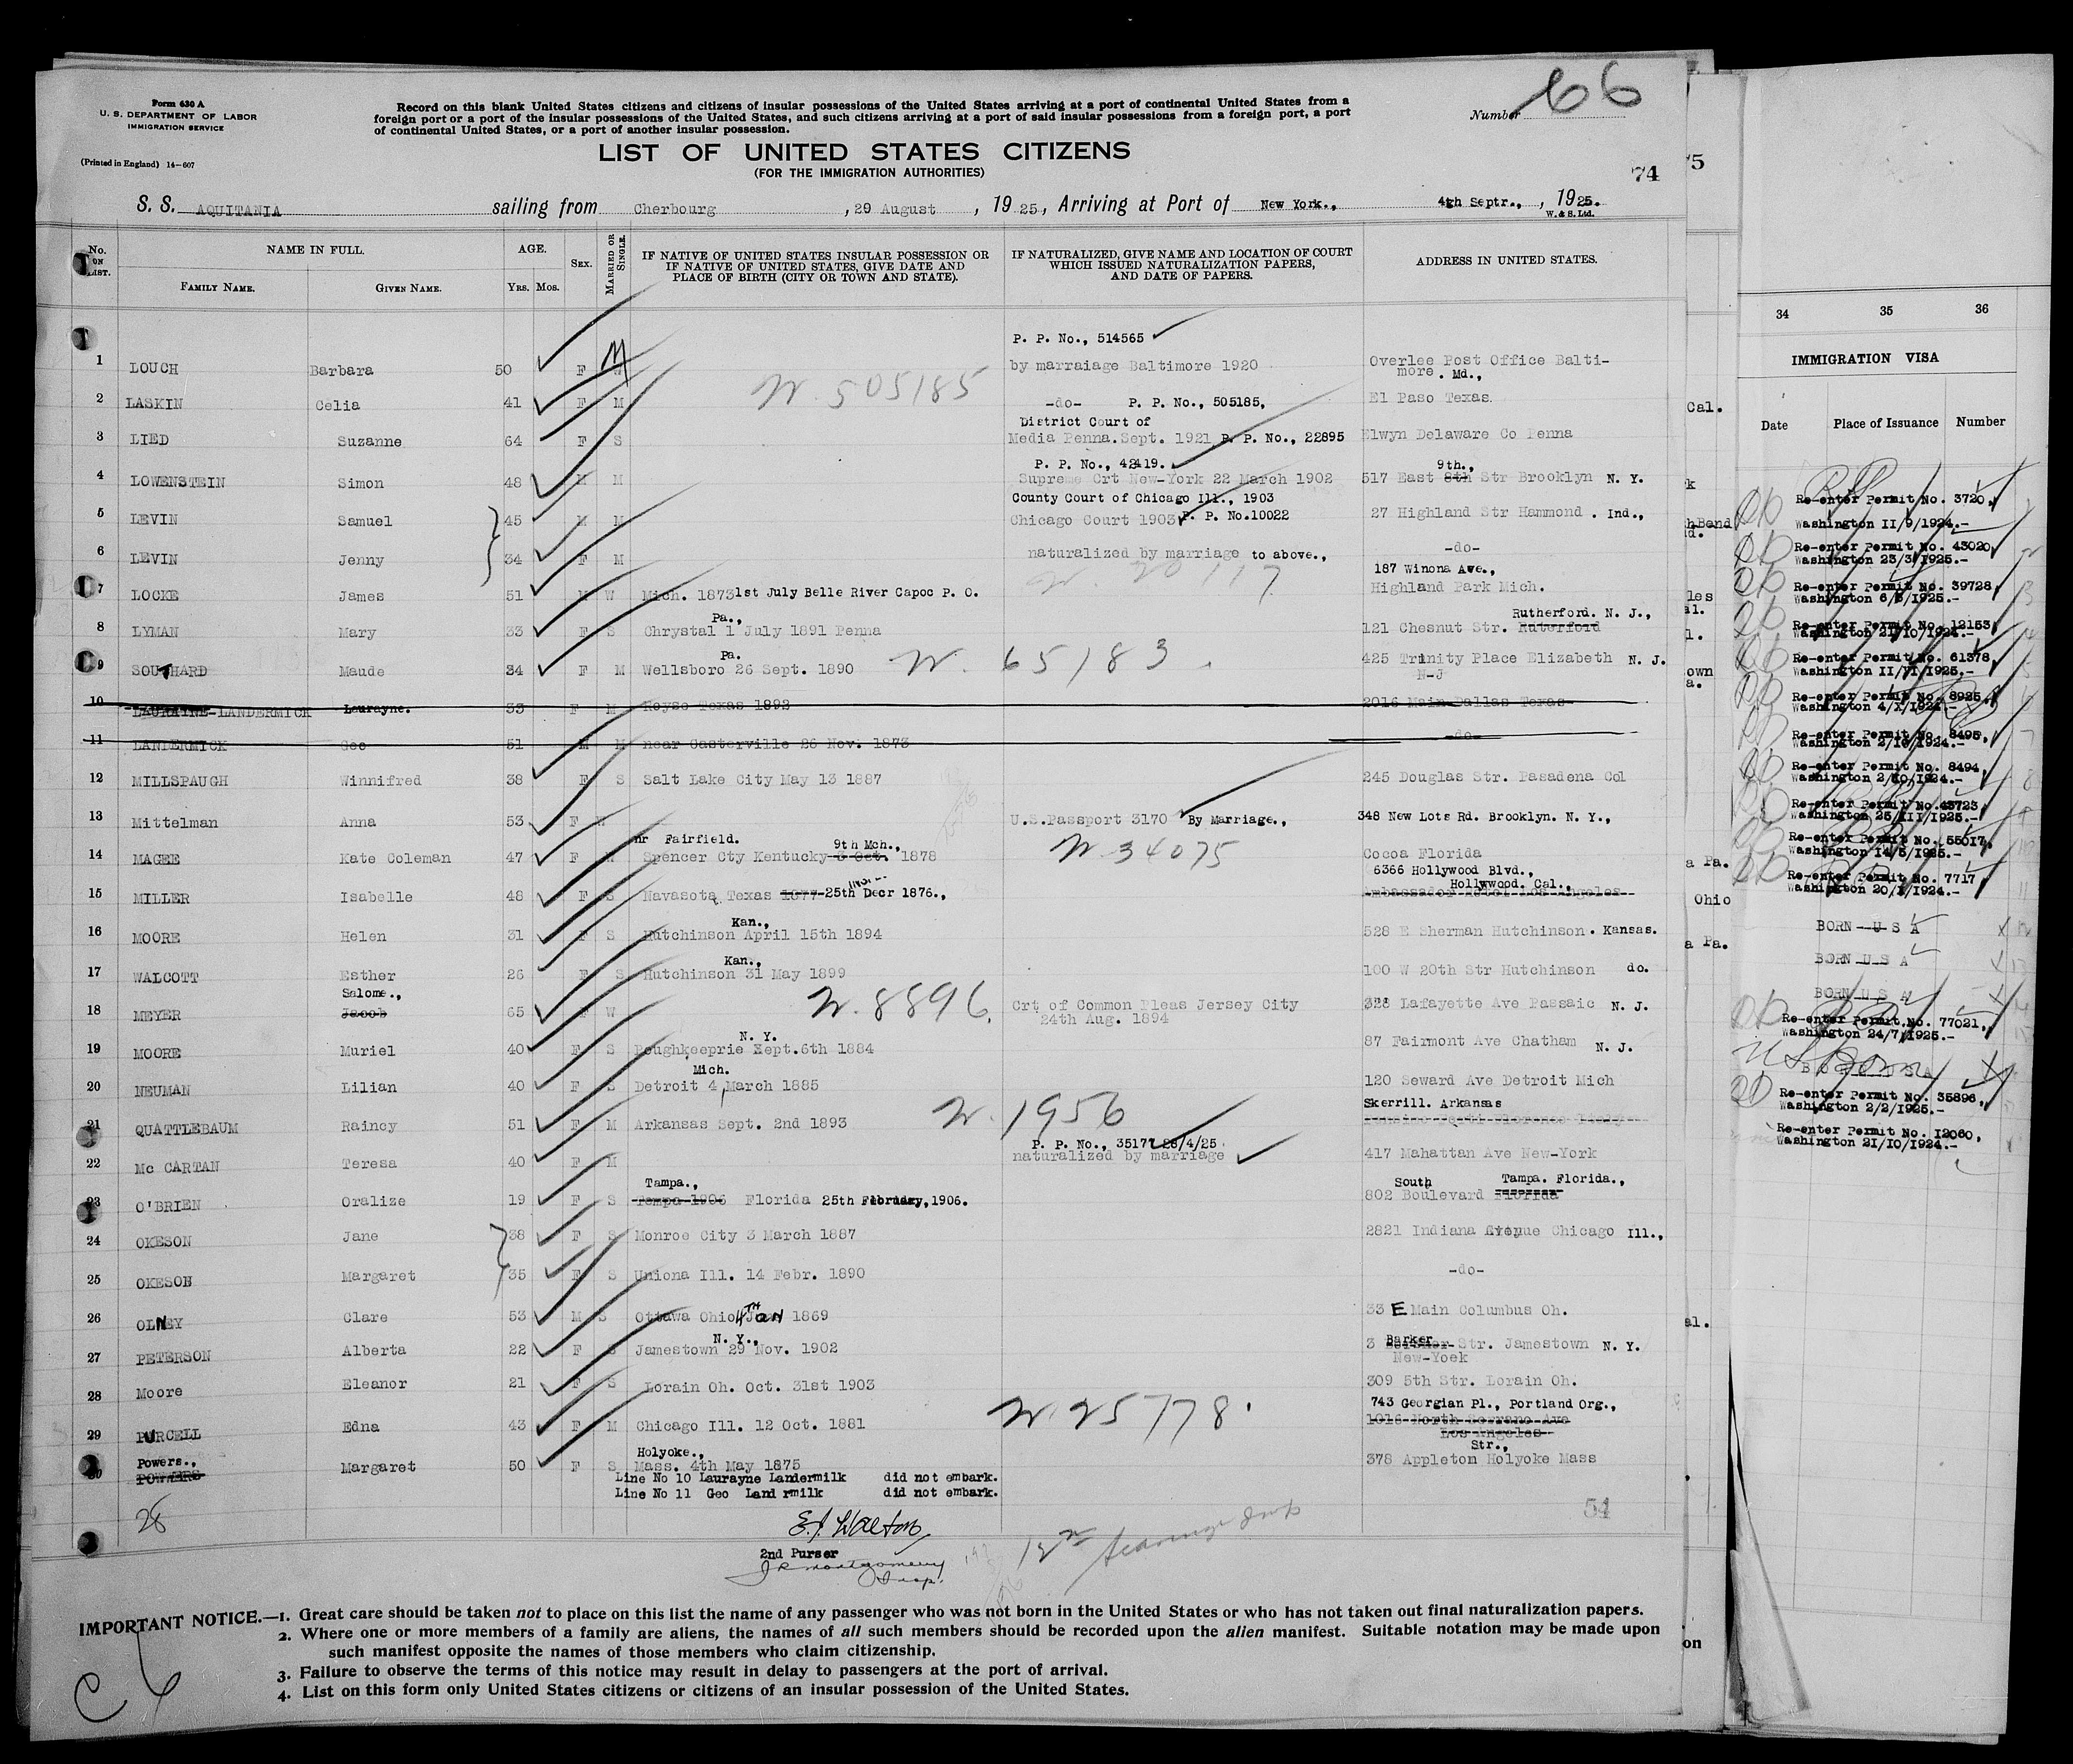 Form 630 A
U. S. DEPARTMENT OF LABOR
IMMIGRATION SERVICE
(Printed in England) 14—607
Record on this blank United States citizens and citizens of insular possessions of the United States arriving at a port of continental United States from a
foreign port or a port of the insular possessions of the United States, and such citizens arriving at a port of said insular possessions from a foreign port, a port
of continental United States, or a port of another insular possession.
Number 66
LIST OF UNITED STATES CITIZENS
(FOR THE IMMIGRATION AUTHORITIES)
74
S. S. AQUITANIA sailing from Cherbourg , 29 August , 19 25, Arriving at Port of New York., 4th Septr., , 1925.
W. & S. Ltd.
No. ON LIST. NAME IN FULL AGE. SEX. MARRIED OR SINGLE. IF NATIVE OF UNITED STATES INSULAR POSSESSION OR IF NATIVE OF UNITED STATES, GIVE DATE AND PLACE OF BIRTH (CITY OR TOWN AND STATE). IF NATURALIZED, GIVE NAME AND LOCATION OF COURT WHICH ISSUED NATURALIZATION PAPERS, AND DATE OF PAPERS. ADDRESS IN UNITED STATES.
FAMILY NAME. GIVEN NAME. YRS. MOS.
P. P. No., 514565
1 LOUCH Barbara 50 F M by marraiage Baltimore 1920 Overlee Post Office Balti-
more . Md.,
N. 505185
2 LASKIN Celia 41 F M -do- P. P. No., 505185, El Paso Texas
District Court of
3 LIED Suzanne 64 F S Media Penna.Sept. 1921 P. P. No., 22895 Elwyn Delaware Co Penna
P. P. No., 42419. 9th.,
4 LOWENSTEIN Simon 48 M M Supreme Crt New-York 22 March 1902 517 East 8th Str Brooklyn N. Y.
County Court of Chicago Ill., 1903
5 LEVIN Samuel 45 M M Chicago Court 1903 P. P. No.10022 27 Highland Str Hammond . Ind.,
6 LEVIN Jenny 34 F M naturalized by marriage to above., -do-
N. 20117 187 Winona Ave.,
7 LOCKE James 51 M W Mich. 1873 1st July Belle River Capoc P. O. Highland Park Mich.
Pa., Rutherford. N. J.,
8 LYMAN Mary 33 F S Chrystal 1 July 1891 Penna 121 Chesnut Str. Ruterford
Pa.
9 SOUTHARD Maude 34 F M Wellsboro 26 Sept. 1890 N. 65183. 425 Trinity Place Elizabeth N. J.
N-J
10 LAURAYNE LANDERMICK Laurayne. 33 F M Royse Texas 1892 2016 Main Dallas Texas
11 LANDERMICK Geo 51 M M near Casterville 26 Nov. 1873 -do-
12 MILLSPAUGH Winnifred 38 F S Salt Lake City May 13 1887 245 Douglas Str. Pasadena Col
13 Mittelman Anna 53 F U.S.Passport 3170 By Marriage., 348 New Lots Rd. Brooklyn. N. Y.,
nr Fairfield. 9th Mch.,
14 MAGEE Kate Coleman 47 F Spencer Cty Kentucky 3 Oct. 1878 N. 34075 Cocoa Florida
6366 Hollywood Blvd.,
Hollywood. Cal.,
15 MILLER Isabelle 48 F S Navasota Texas 1877 25th Decr 1876., Ambassador Hotel Los Angeles
Kan.,
16 MOORE Helen 31 F S Hutchinson April 15th 1894 528 E Sherman Hutchinson . Kansas.
Kan.,
17 WALCOTT Esther 26 F S Hutchinson 31 May 1899 100 W 20th Str Hutchinson do.
Salome.,
18 MEYER Jacob 65 F W N. 8896. Crt of Common Pleas Jersey City 328 Lafayette Ave Passaic N. J.
24th Aug. 1894
N. Y.
19 MOORE Muriel 40 F S Poughkeeprie Xept.6th 1884 87 Fairmont Ave Chatham N. J.
Mich.
20 NEUMAN Lilian 40 F S Detroit 4 March 1885 120 Seward Ave Detroit Mich
N. 1956 Skerrill. Arkansas
21 QUATTLEBAUM Raincy 51 F M Arkansas Sept. 2nd 1893
P. P. No., 35177 28/4/25.
22 Mc CARTAN Teresa 40 F M naturalized by marriage 417 Mahattan Ave New-York
Tampa., South Tampa. Florida.,
23 O'BRIEN Oralize 19 F S Tampa 1906 Florida 25th February, 1906. 802 Boulevard Florida
24 OKESON Jane 38 F S Monroe City 3 March 1887 2821 Indiana Avenue Chicago Ill.,
25 OKESON Margaret 35 F S Uniona Ill. 14 Febr. 1890 -do-
26 OLNEY Clare 53 M S Ottawa Ohio 4TH Jan 1869 33 E Main Columbus Oh.
N. Y., Barker
27 PETERSON Alberta 22 F S Jamestown 29 Nov. 1902 3 Str. Jamestown N. Y.
New-Yoek
28 Moore Eleanor 21 F S Lorain Oh. Oct. 31st 1903 309 5th Str. Lorain Oh.
N. 25778. 743 Georgian Pl., Portland Org.,
29 PURCELL Edna 43 F M Chicago Ill. 12 Oct. 1881 1016 North Serrano Ave
Los Angeles
Powers., Holyoke., Str.,
30 POWERS Margaret 50 F S Mass. 4th May 1875 378 Appleton Holyoke Mass
Line No 10 Laurayne Landermilk did not embark.
Line No 11 Geo Land rmilk did not embark.
28
54
E. J. Walton
2nd Purser
J R Montgomery
Insp.
IMPORTANT NOTICE.—1. Great care should be taken not to place on this list the name of any passenger who was not born in the United States or who has not taken out final naturalization papers.
2. Where one or more members of a family are aliens, the names of all such members should be recorded upon the alien manifest. Suitable notation may be made upon
such manifest opposite the names of those members who claim citizenship.
3. Failure to observe the terms of this notice may result in delay to passengers at the port of arrival.
4. List on this form only United States citizens or citizens of an insular possession of the United States.
34 35 36
IMMIGRATION VISA
Date Place of Issuance Number
Re-enter Permit No. 3720,
Washington II/9/1924.-
Re-enter Permit No. 43020,
Washington 23/3/1925.-
Re-enter Permit No. 39728,
Washington 6/3/1925.-
Re-enter Permit No. 12153,
Washington 21/10/1924.-
Re-enter Permit No. 61378,
Washington II/VI/1925,-
Re-enter Permit No. 8925,
Washington 4/X/1924.-
Re-enter Permit No. 8495,
Washington 2/10/1924.-
Re-enter Permit No. 8494,
Washington 2/10/1924.-
Re-enter Permit No.43723,
Washington 25/III/1925.-
Re-enter Permit No. 55017,
Washington 14/5/1925.-
Re-enter Permit No. 7717,
Washington 20/X/1924.-
BORN U S A
BORN U S A
BORN U S A
Re-enter Permit No. 77021,
Washington 24/7/1925.-
US Born
BORN USA
Re-enter Permit No. 35896,
Washington 2/2/1925.-
Re-enter Permit No. I2060,
Washington 21/10/1924.-